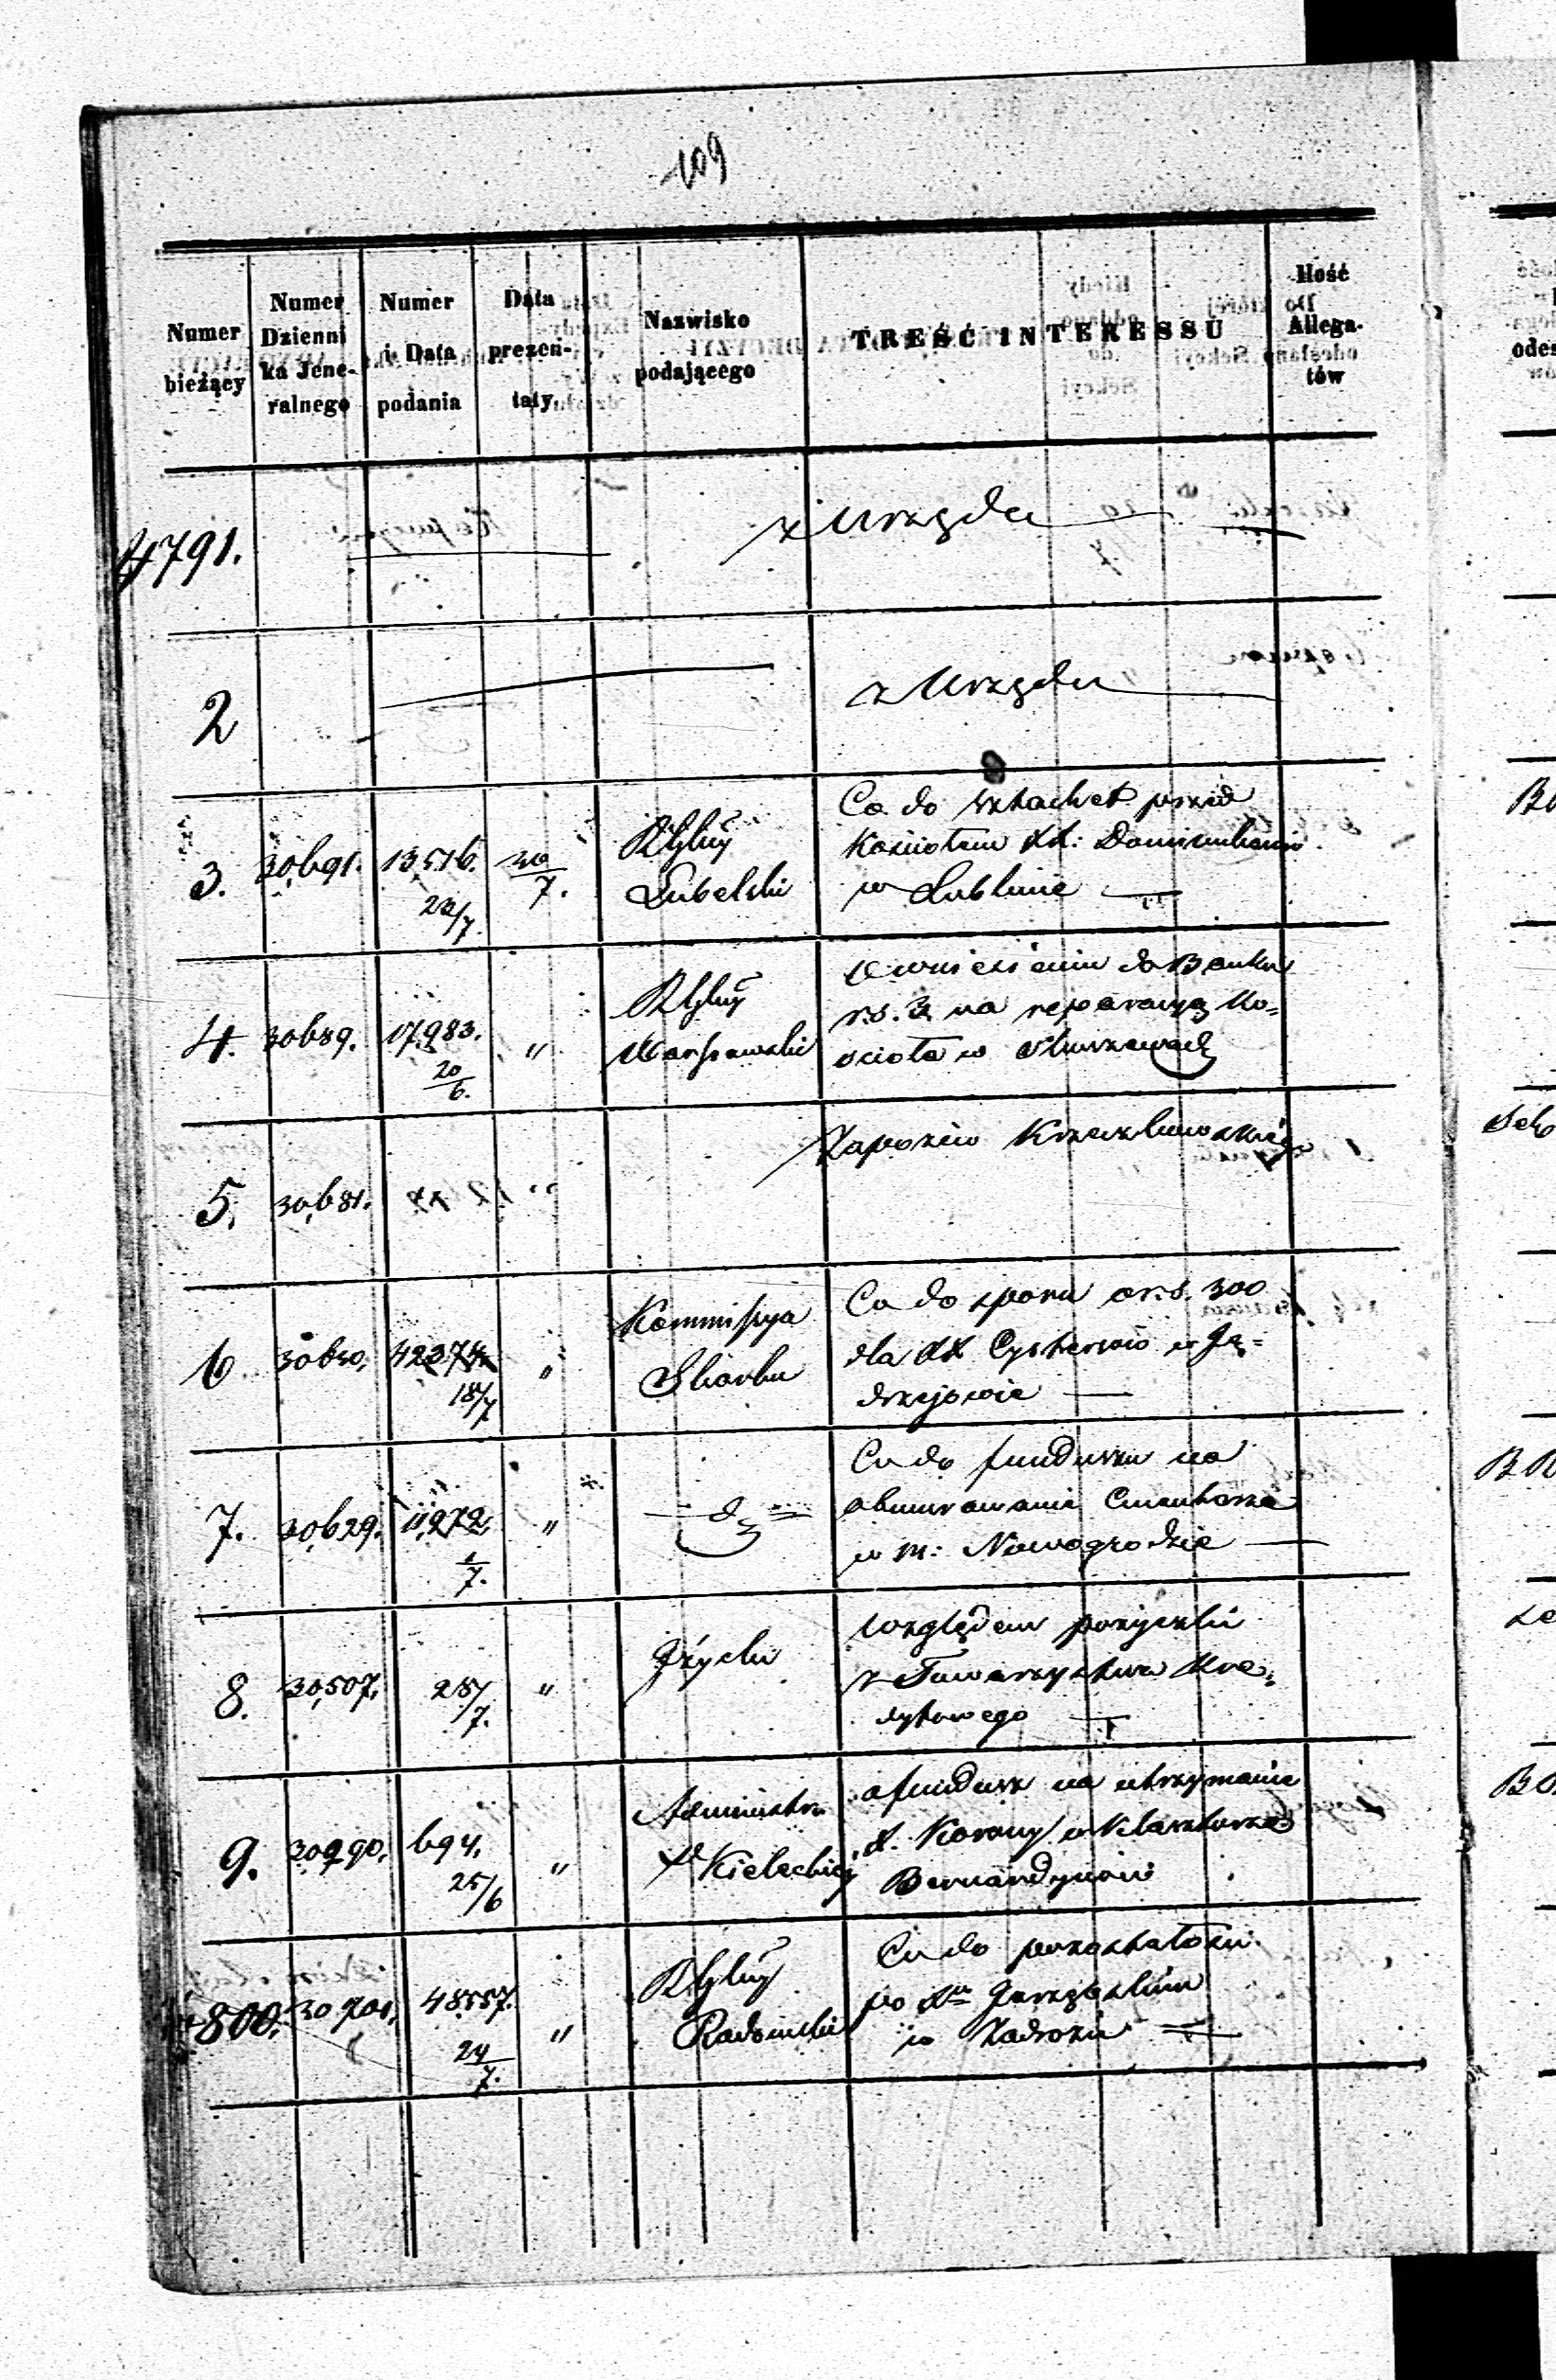 109
Numer bieżący
Numer Dziennika Jene-ralnego
Numer i Data podania
Data prezen-taty
Nazwisko podającego
TREŚĆ INTERESSU
Ilość Allega-tów
4791. z Urzędu
2 z Urzędu
3. 30,691. 13516. 22/7 30/7. RGlny Lubelski
Co do sztachet przed
Kościołem XX: Dominikanów
w Lublinie
4. 30689. 17983. 20/6. " RGlny Warszawski
O wniesieniu do Banku
r.s. 3 na reparacyą Ko-
ścioła w
5. 30,681. "
Zapozew
6 30630. 42374 18/7 " Kommissya Skarbu
Co do sporu o r.s. 300
dla XX Cystersów w Ję-
drzejowie
7. 30,629. 11,272 1/7. " — d° —
Co do funduszu na
obmurowanie Cmentarza
w m: Nowogrodzie
8. 30,507. 25/7. "
Względem pożyczki
z Towarzystwa Kre-
dytowego
9. 30290. 694. 25/6 " Administr. Kieleckiej
o fundusz na utrzymanie
X. w Klasztorze
Bernardynów
800. 30701. 48557. 24/7. " RGlny Radomski
Co do pozostałości
po Xu
w